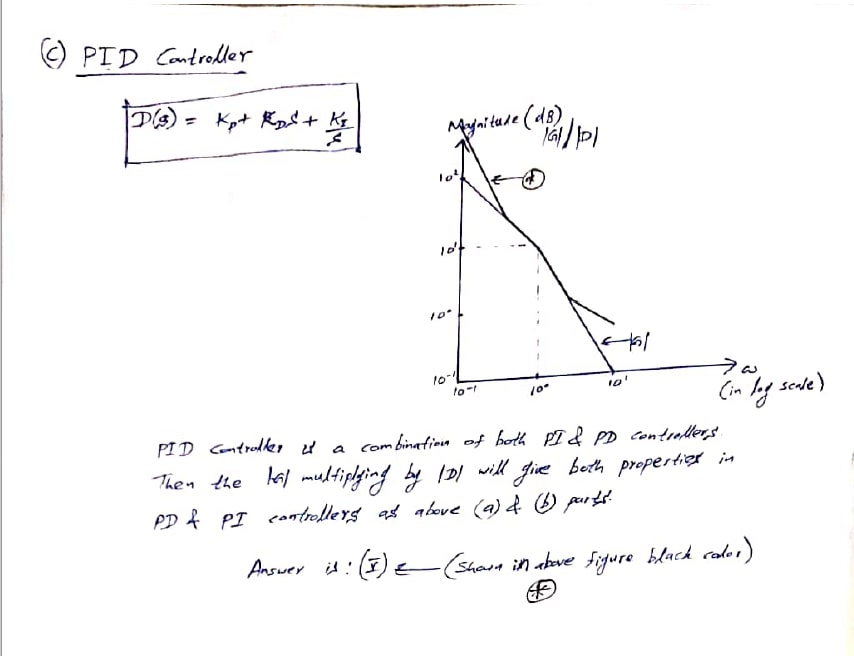 (c) PID Controller
D(s) = Kp + KDS + KI/S
Magnitude (dB)
|G| |D|
10²
*
10¹
10⁰
|G|
10⁻¹
10⁻¹ 10⁰ 10¹
ω
(in log scale)
PID Controller is a combination of both PI & PD controllers.
Then the |G| multiplying by |D| will give both properties in
PD & PI controllers as above (a) & (b) parts.
Answer is : (I) ← (Shown in above figure black color)
*